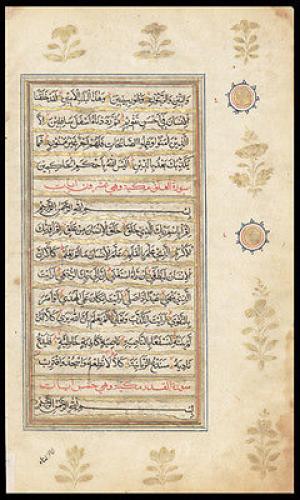 والتين والزيتون وطور سينين وهذا البلد الأمين لقد خلقنا
الإنسان في أحسن تقويم ثم رددناه أسفل سافلين إلا
الذين آمنوا وعملوا الصالحات فلهم أجر غير ممنون فما
يكذبك بعد بالدين أليس الله بأحكم الحاكمين
سورة العلق مكية وهي عشرون آيات
بسم الله الرحمن الرحيم
اقرأ باسم ربك الذي خلق خلق الإنسان من علق اقرأ وربك
الأكرم الذي علم بالقلم علم الإنسان ما لم يعلم كلا إن
الإنسان ليطغى أن رآه استغنى إن إلى ربك الرجعى أرأيت
الذي ينهى عبدا إذا صلى أرأيت إن كان على الهدى أو أمر
بالتقوى أرأيت إن كذب وتولى ألم يعلم بأن الله يرى كلا لئن
لم ينته لنسفعا بالناصية ناصية كاذبة خاطئة فليدع
ناديه سندع الزبانية كلا لا تطعه واسجد واقترب
سورة القدر مكية وهي خمس آيات
بسم الله الرحمن الرحيم